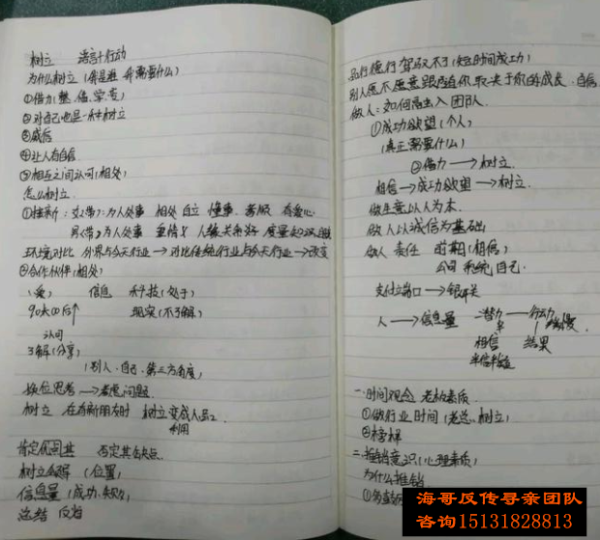 树立 语言+行动
为什么树立(我是谁 我需要什么)
①借力(整、借、学、变)
②对自己也是一种树立
③威信
④让人有自信
⑤相互之间认可(相处)
怎么树立
为人处事 相处 自立 懂事 孝顺 有爱心
为人处事 重情义 人缘关系好
环境对比 外界与今天行业→对比传统行业与今天行业→改变
②合作伙伴(相处)
信息 科技(处于)
90后 00后 现实(不了解)
认可
了解(分享)
(别人、自己、第三方角度)
换位思考→考虑问题
树立 在有新朋友时 树立变成人品
利用
肯定优点 否定其缺点
树立 (位置)
信息量(成功、失败)
总结
品行德行驾驭不了(短时间成功)
别人愿不愿意跟随你取决于你的成度、自信
做人: 如何融入团队
①成功欲望(个人)
(真正需要什么)
②借力→树立
相信→成功欲望→树立
做生意以人为本
做人以诚信为基础
做人 责任 时期(相信)
公司 系统 自己
支付端口→银联
人→信息量 潜力→行动
相信 结果
半信半疑
一、时间观念 老板素质
①做行业时间(老总、树立)
②榜样
二、推销意识(心理素质)
为什么推销
海哥反传寻亲团队
咨询15131828813